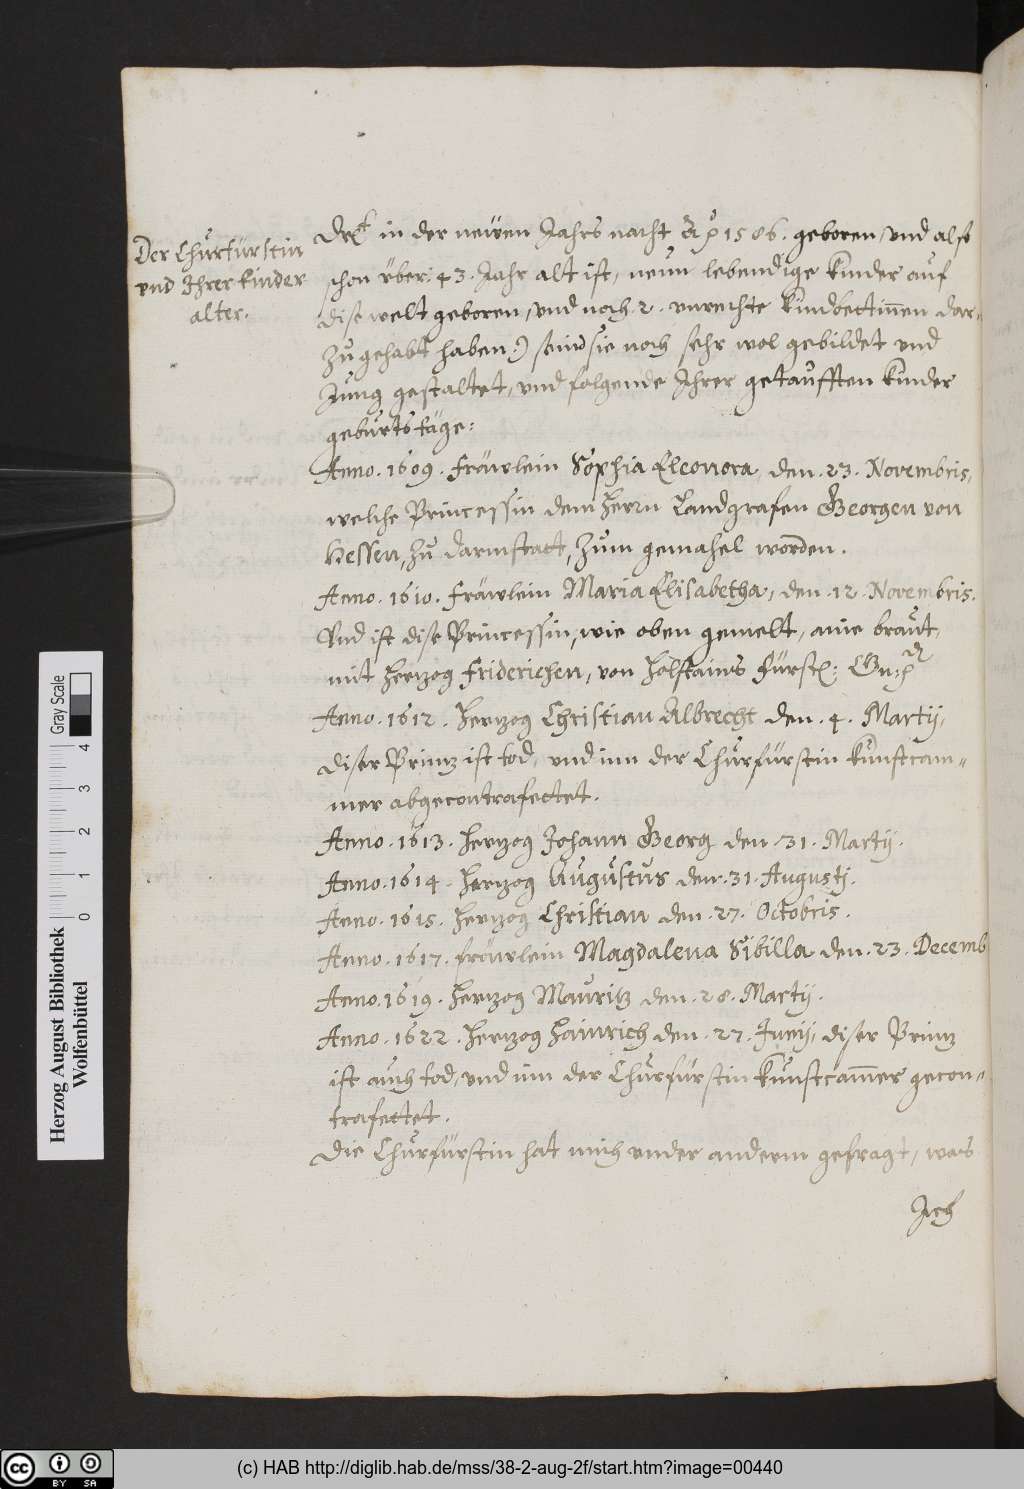 Der Churfürstin
vnd Ihrer kinder
alter.
Drt in der newen Jahrs nacht Aº 1586. geboren, vnd also
schon über: 43. Jahr alt ist, neun lebendige kinder auf
dise welt geboren, vnd noch. 2. vnrechte kindbettinnen dar-
zu gehabt haben:) seind sie noch sehr wol gebildet vnd
Jung gestaltet, vnd folgende Ihrer getaufften kinder
geburtstäge:
Anno. 1609. fräwlein Sophia Eleonora, den. 23. Novembris,
welche Princessin dem Herrn Landgrafen Georgen von
Hessen, zu Darmstatt, zum gemahel worden.
Anno. 1610. fräwlein Maria Elisabetha, den. 12. Novembris.
Vnd ist dise Princessin, wie oben gemelt, aine braut,
mit Hertzog Friderichen, von Holstains Fürstl: Gn:
Anno. 1612. Hertzog Christian Albrecht den. 4. Martij,
diser Printz ist tod, vnd inn der Churfürstin kunstcam-
mer abgecontrafectet.
Anno. 1613. Hertzog Johann Georg den. 31. Martij.
Anno. 1614. Hertzog Augustus den. 31. Augustj.
Anno. 1615. Hertzog Christian den. 27. Octobris.
Anno. 1617. fräwlein Magdalena Sibilla den. 23. Decemb
Anno. 1619. Hertzog Mauritz den. 28. Martij.
Anno. 1622. Hertzog Hainrich den. 27. Junij, diser Printz
ist auch tod, vnd inn der Churfürstin kunstcam̄er gecon-
trafectet.
Die Churfürstin hat mich vnder anderm gefragt, was
Ich
Herzog August Bibliothek
Wolfenbüttel
0 1 2 3 4
Gray Scale
cc BY SA
(c) HAB http://diglib.hab.de/mss/38-2-aug-2f/start.htm?image=00440